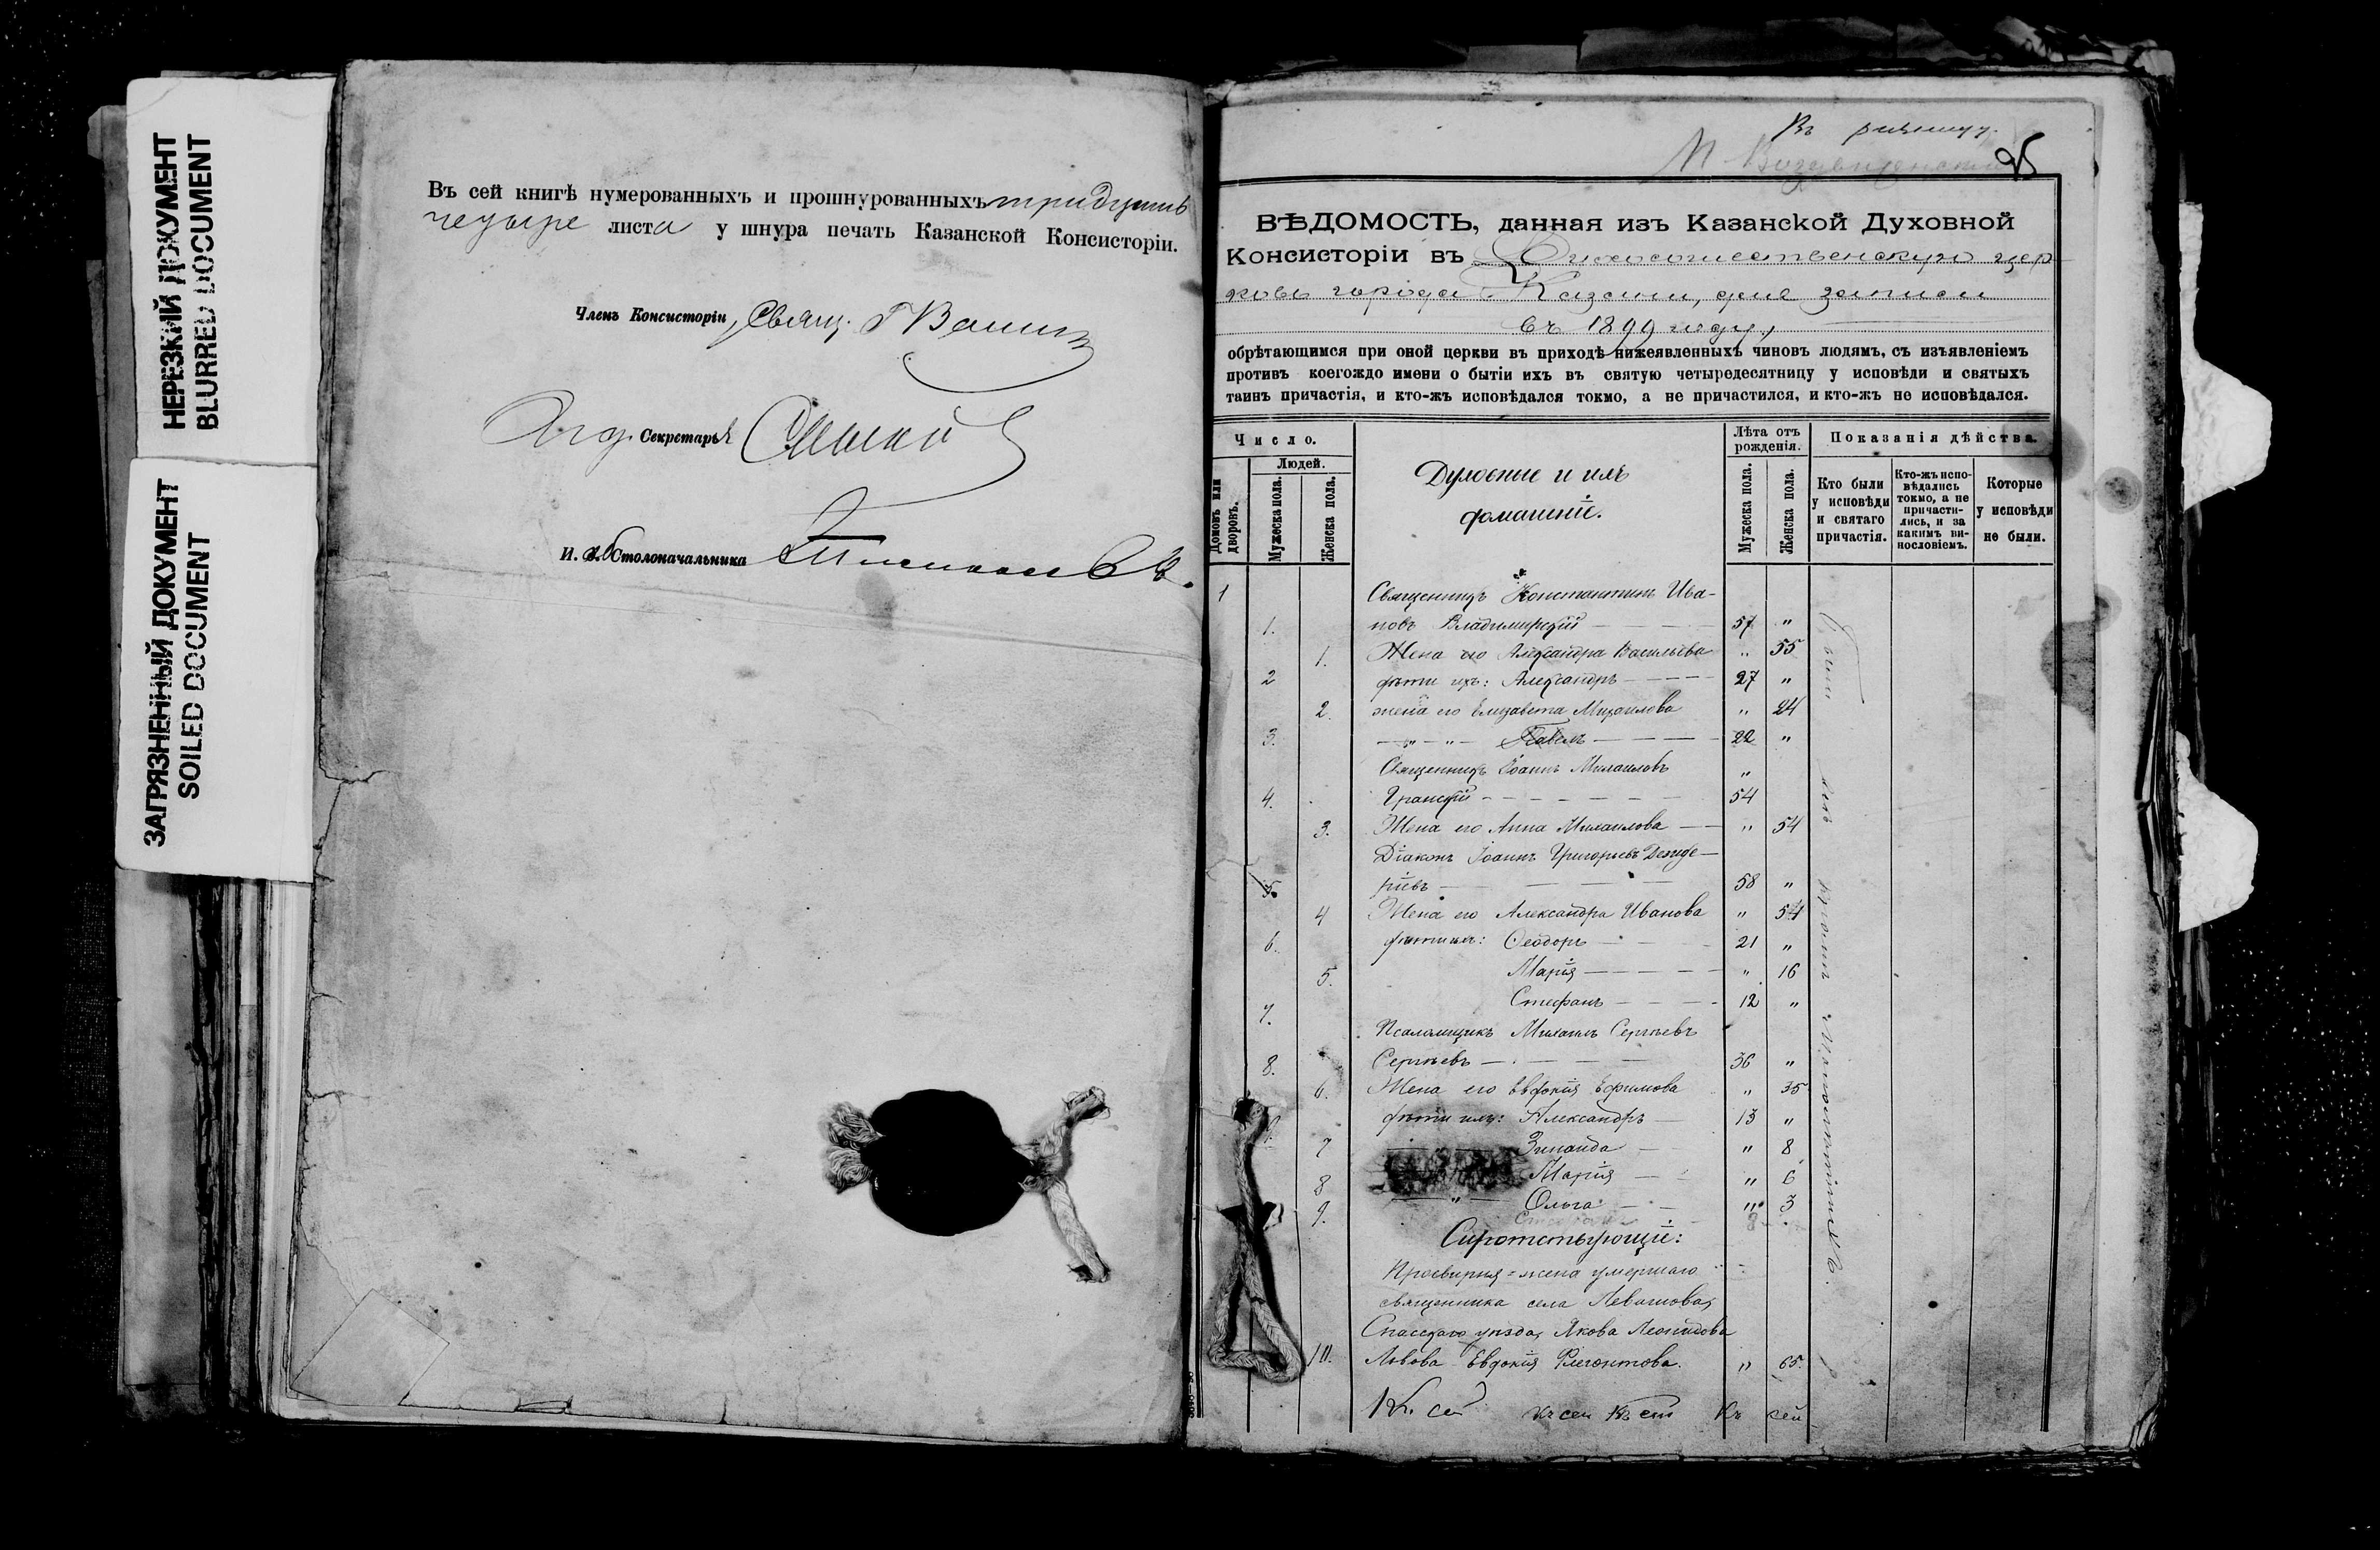 НЕРЕЗКИЙ ДОКУМЕНТ
BLURRED DOCUMENT
ЗАГРЯЗНЕННЫЙ ДОКУМЕНТ
SOILED DOCUMENT
Въ сей книгѣ нумерованныхъ и прошнурованныхъ тридцать
четыре листа у шнура печать Казанской Консисторіи.
Членъ Консисторіи, Свящ.
Секретарь
И. д. Столоначальника
Въ
95
ВѢДОМОСТЬ, данная изъ Казанской Духовной
Консисторіи въ Духосошественскую цер-
ковь города Казани, для записи
въ 1899 году,
обрѣтающимся при оной церкви въ приходѣ нижеявленныхъ чиновъ людямъ, съ изъявленіемъ
противъ коегождо имени о бытіи ихъ въ святую четыредесятницу у исповѣди и святыхъ
таинъ причастія, и кто-жъ исповѣдался токмо, а не причастился, и кто-жъ не исповѣдался.
Число.
Людей.
Домовъ или дворовъ.
Мужеска пола.
Женска пола.
Духовные и ихъ
домашніе.
Лѣта отъ рожденія.
Мужеска пола.
Женска пола.
Показанія дѣйства.
Кто были у исповѣди и святаго причастія.
Кто-жъ исповѣдались токмо, а не причастились, и за какимъ винословіемъ.
Которые у исповѣди не были.
1 Священникъ Константинъ Ива-
1. новъ Владимирскій 57 "
1. Жена его Александра Васильева " 55
2 дѣти ихъ: Александръ 27 "
2. жена его Елизавета Михаилова " 24
3. " " Павелъ 22 "
Священникъ Іоаннъ Михаиловъ "
4. Гранскій 54
3. Жена его Анна Михаилова " 54
Діаконъ Іоаннъ Григорьевъ Дезиде-
5. ріевъ 58 "
4 Жена его Александра Иванова " 54
6. дѣти ихъ: Ѳеодоръ 21 "
5. Марія " 16
7. Стефанъ 12 "
Псаломщикъ Михаилъ Сергѣевъ
8. Сергѣевъ 36 "
6. Жена его Евдокія Ефимова " 35
9. дѣти ихъ: Александръ 13 "
7 Зинаида " 8
8 Марія " 6
9. " Ольга " 3
Сиротствующіе:
Просвирня - жена умершаго
священника села Левашова,
Спасскаго уѣзда, Якова Леонидова
10. Львова Евдокія Флегонтова. " 65.
Къ сей къ сей Къ сей Къ сей